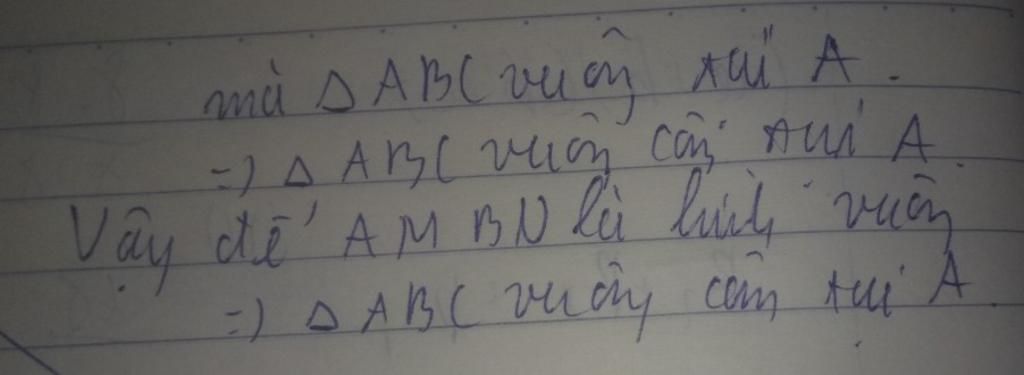 mà Δ ABC vuông tại A.
=) Δ ABC vuông cân tại A.
Vậy để AMBN là hình vuông
=) Δ ABC vuông cân tại A.